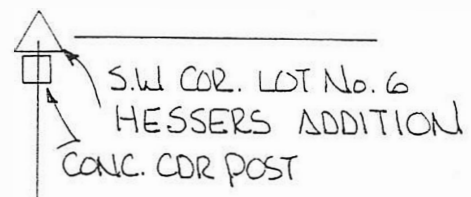 S.W COR. LOT No. 6
HESSERS ADDITION
CONC. COR POST